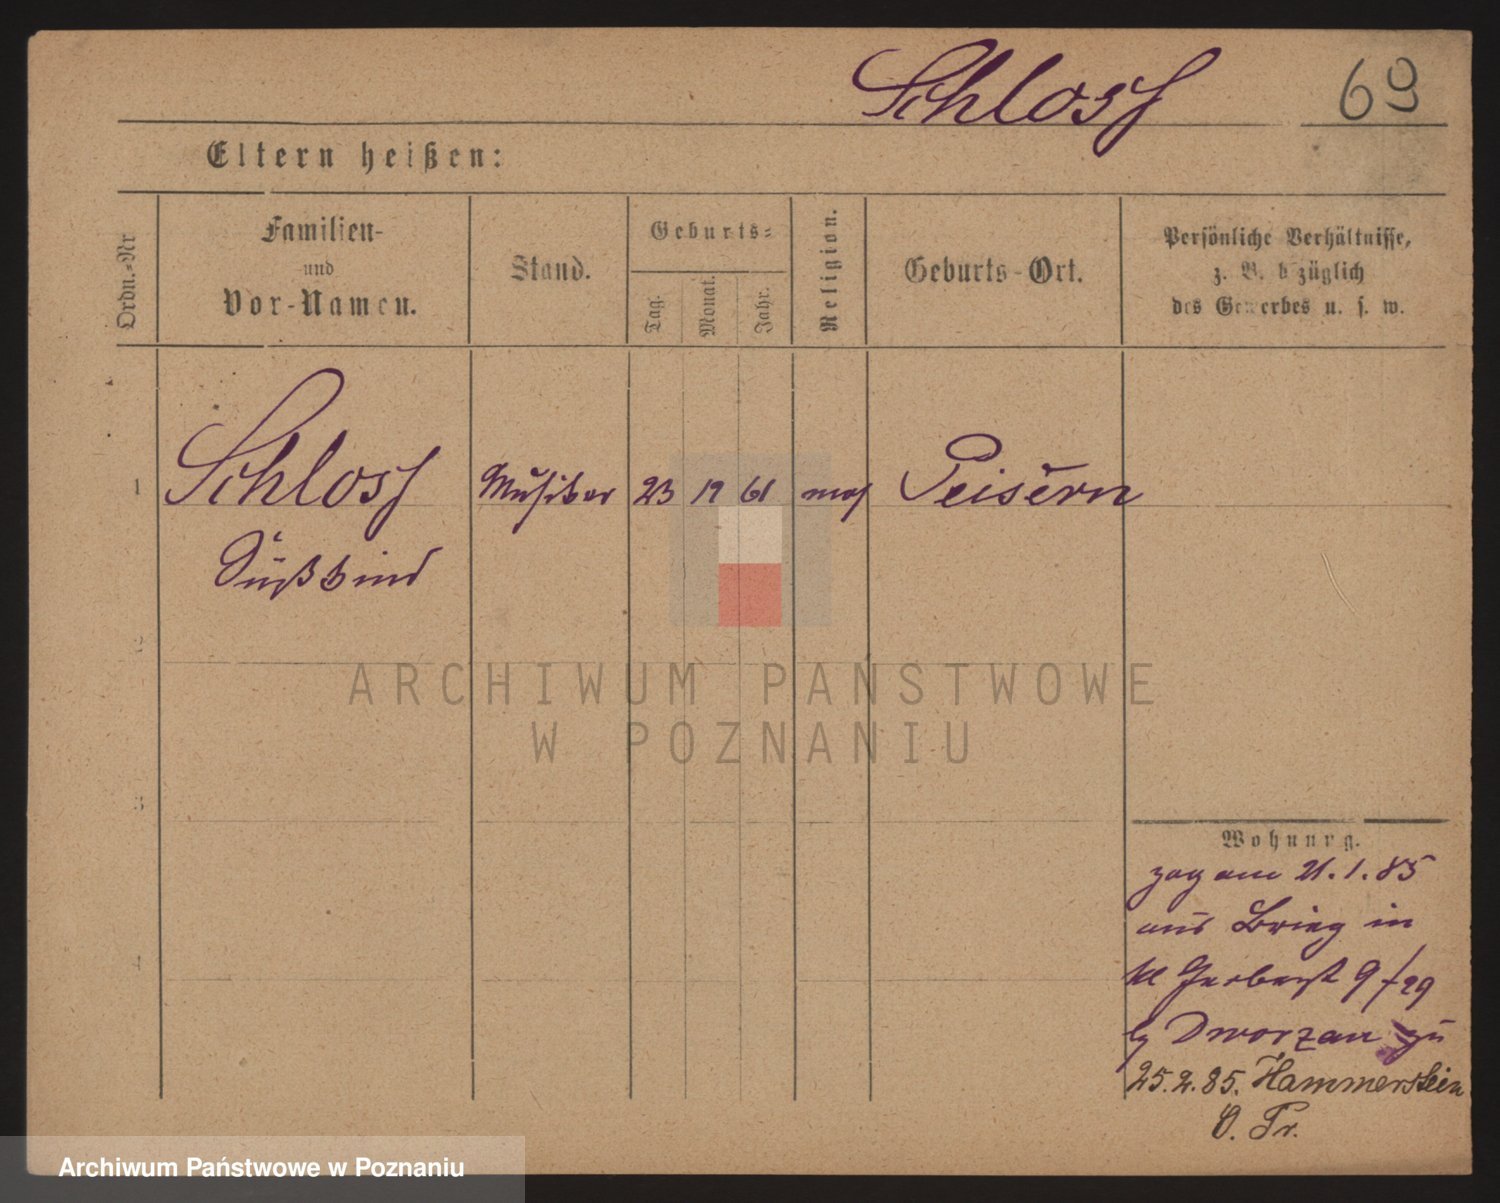 Schloss
69
Eltern heißen:
Ordn.-Nr
Familien-
und
Vor-Namen.
Stand.
Geburts-
Tag.
Monat.
Jahr.
Religion.
Geburts-Ort.
Persönliche Verhältnisse,
z. B. bezüglich
des Gewerbes u. s. w.
1
Schloss
Süßkind
Musiker
23
12
61
mos
Peisern
2
3
4
Wohnung.
zog am 21.1.85
aus Brieg in
kl Gerberst 9/29
by Dworzan zu
25.2.85. Hammerstein
O. Pr.
ARCHIWUM PAŃSTWOWE
W POZNANIU
Archiwum Państwowe w Poznaniu